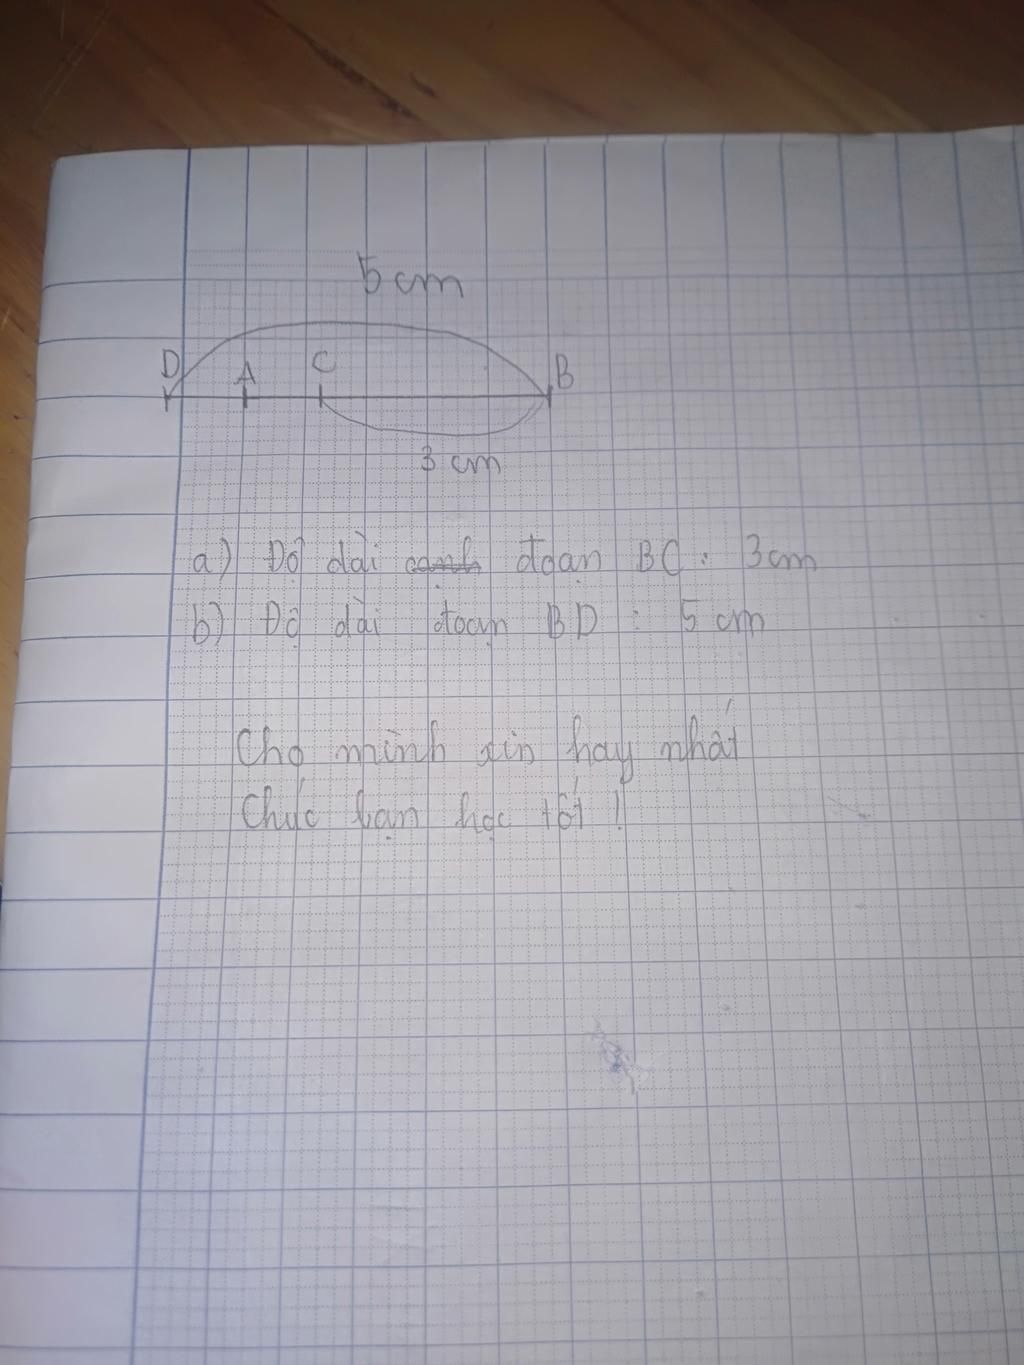 5 cm
D A C B
3 cm
a) Độ dài canh đoạn BC : 3cm
b) Độ dài đoạn BD : 5 cm
Cho mình xin hay nhất
Chúc bạn học tốt !